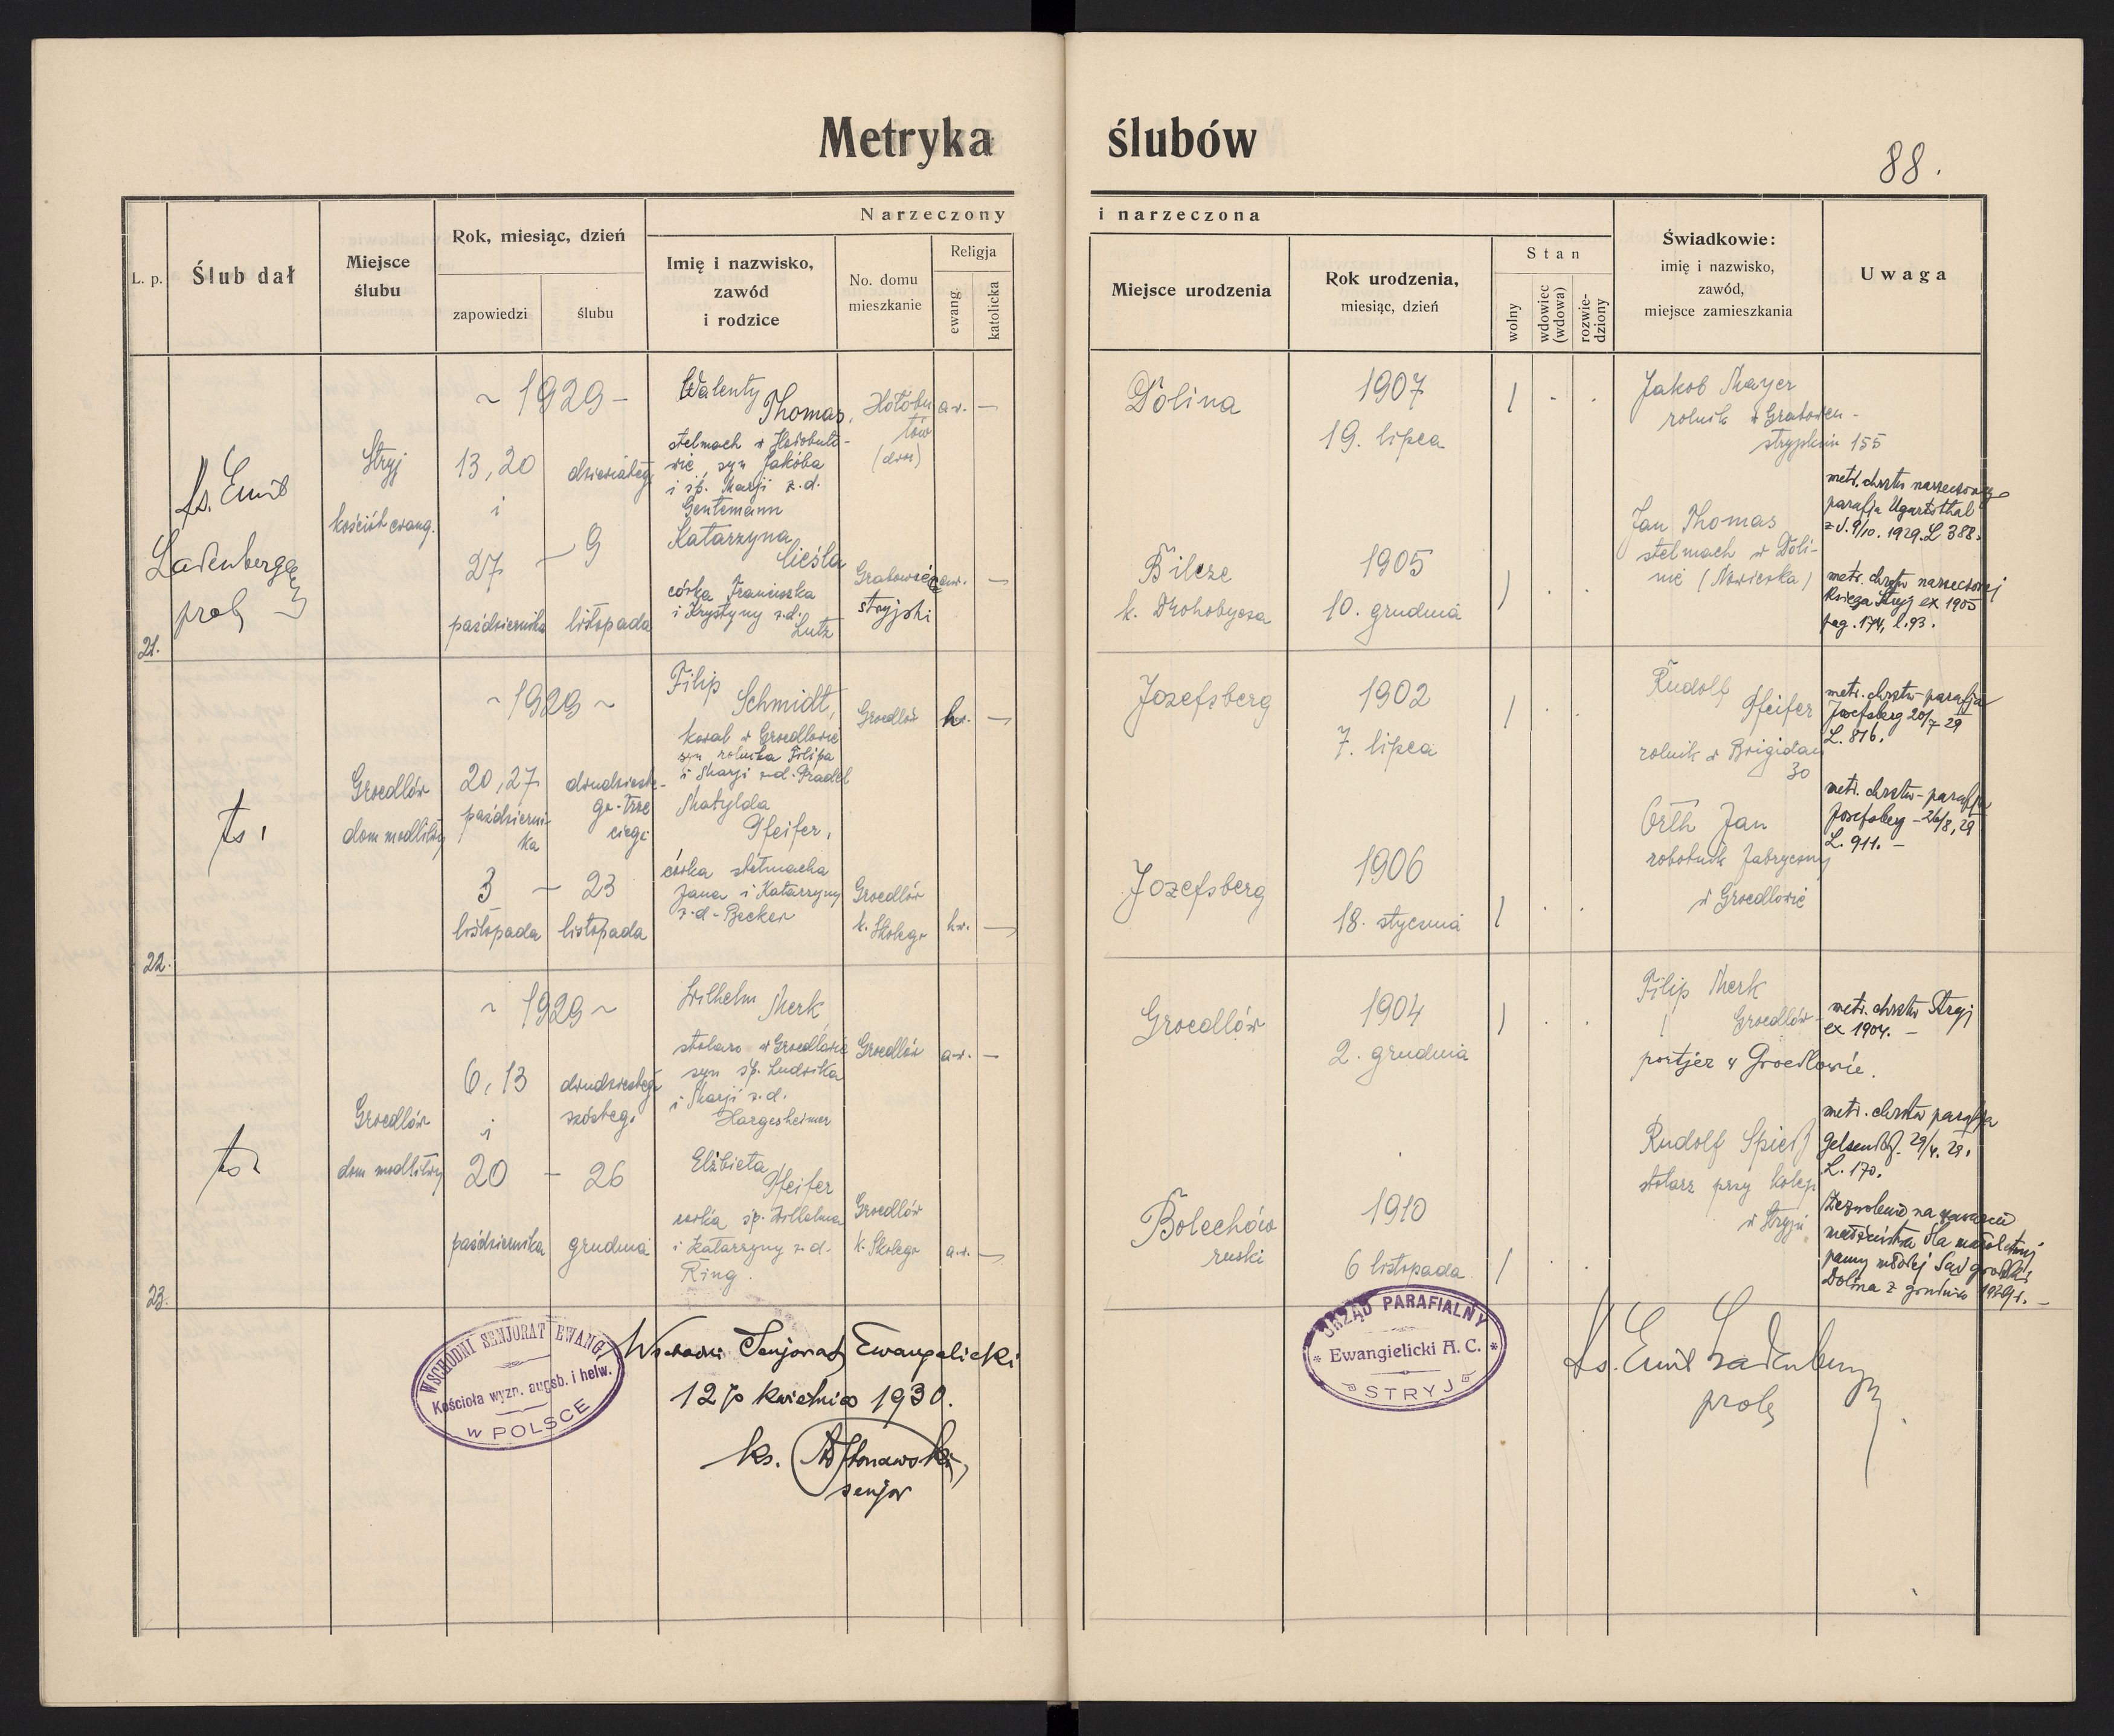 Metryka ślubów
88.
L. p.
Ślub dał
Miejsce ślubu
Rok, miesiąc, dzień
zapowiedzi
ślubu
Narzeczony i narzeczona
Imię i nazwisko,
zawód
i rodzice
No. domu
mieszkanie
Religja
ewang.
katolicka
Miejsce urodzenia
Rok urodzenia,
miesiąc, dzień
Stan
wolny
wdowiec
(wdowa)
rozwie-
dziony
Świadkowie:
imię i nazwisko,
zawód,
miejsce zamieszkania
Uwaga
21.
ks. Emil
Ladenberger
prob
Stryj
kościół ewang.
~ 1929 -
13, 20
i
27
października
dziewiątego
— 9
listopada
Walenty
Thomas,
stelmach w Hołobuto-
wie, syn Jakóba
i śp. Marji z.d.
Gentemann
Hołobu
tów
(dwór)
a.w. —
Dolina
1907
19. lipca
Jakob Mayer
rolnik w Grabowcu -
stryjskim 155
metr. chrztu narzeczonego
parafja Ugartsthal
z d. 9/10. 1929. L 388.
Katarzyna
Cieśla
córka Franciszka
i Krystyny z.d.
Lutz
Grabowiec
stryjski
a.w. —
Bilcze
k. Drohobycza
1905
10. grudnia
Jan Thomas
stelmach w Doli-
nie (Nowiczka)
metr. chrztu narzeczonej
Księga Stryj ex 1905
pag. 174, l. 93.
22.
ts.
Groedlów
dom modlitwy
~ 1929 ~
20, 27
październi-
ka
3
listopada
dwudzieste-
go-trze
ciego
— 23
listopada
Filip
Schmidt,
kowal w Groedlowie
syn rolnika Filipa
i Marji z.d. Bradel
Groedlów
h.w. —
Josefsberg
1902
7. lipca
Rudolf
Pfeifer
rolnik w Brigidau
30
metr. chrztu - parafja
Josefsberg 20/7 29
L. 816.
Matylda
Pfeifer,
córka stelmacha
Jana i Katarzyny
z.d. Becker
Groedlów
k. Skolego
h.w. —
Josefsberg
1906
18. stycznia
Orth Jan
robotnik fabryczny
w Groedlowie
metr. chrztu - parafja
Josefsberg - 26/8, 29
L. 911. —
23.
ts.
Groedlów
dom modlitwy
~ 1929 ~
6, 13
i
20
października
dwudziestego
szóstego
— 26
grudnia
Wilhelm Merk,
stolarz w Groedlowie
syn śp. Ludwika
i Marji z.d.
Hargesheimer
Groedlów
a.w. —
Groedlów
1904
2. grudnia
Filip Merk
Groedlów
portjer w Groedlowie.
metr. chrztu Stryj
ex 1904. —
Elżbieta
Pfeifer
córka śp. Wilhelma
i Katarzyny z.d.
Ring.
Groedlów
k. Skolego
a.w. —
Bolechów
ruski
1910
6 listopada
Rudolf Spieß
stolarz przy kolej
w Stryju.
metr. chrztu parafja
Gelsendf. 29/4. 29.
L. 170.
Zezwolenie na zawarcie
małżeństwa dla małoletniej
panny młodej Sąd grodzki
Dolina z grudnia 1929 r. —
WSCHODNI SENJORAT EWANG.
Kościoła wyzn. augsb. i helw.
w POLSCE
Wschodni Senjorat Ewangelicki
12go kwietnia 1930.
ks.
senjor
URZĄD PARAFIALNY
* Ewangielicki A. C. *
STRYJ
ks. Emil Ladenberger
prob